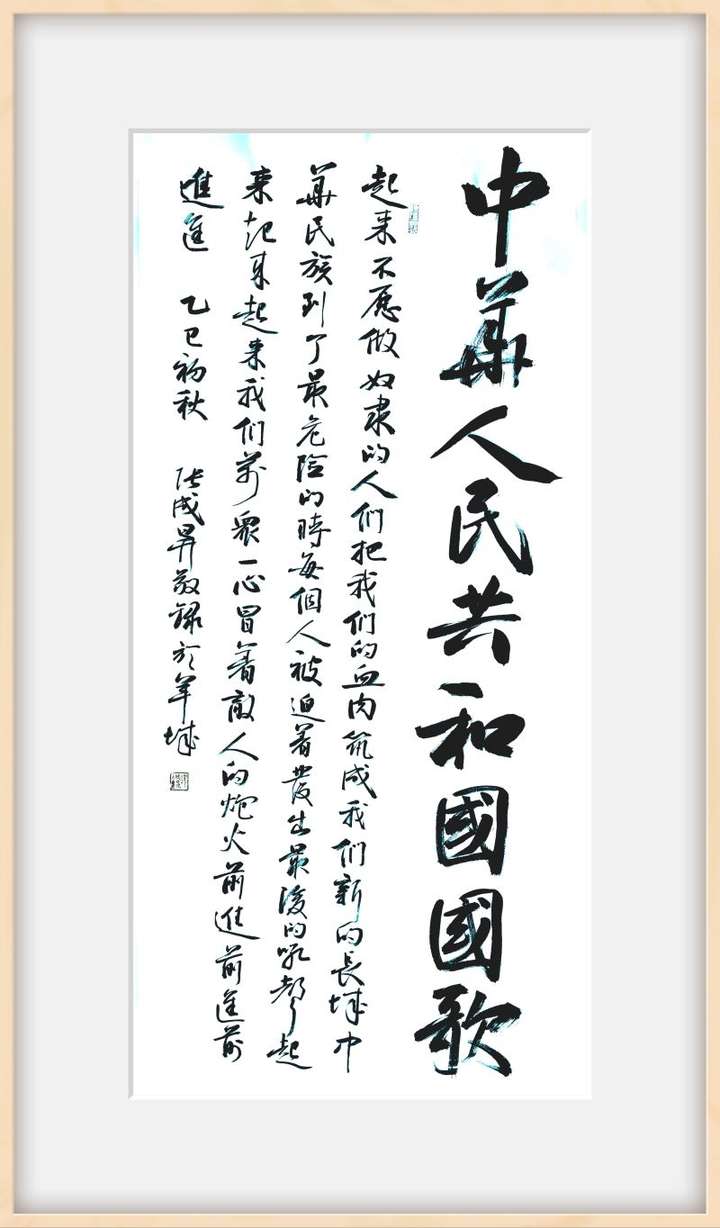 中華人民共和國國歌
起来不愿做奴隶的人们把我们的血肉筑成我们新的長城中
華民族到了最危险的時每個人被迫着發出最後的吼聲起
来起来起来我们萬眾一心冒着敵人的炮火前進前進前
進進 乙巳初秋 张成昇敬録於羊城